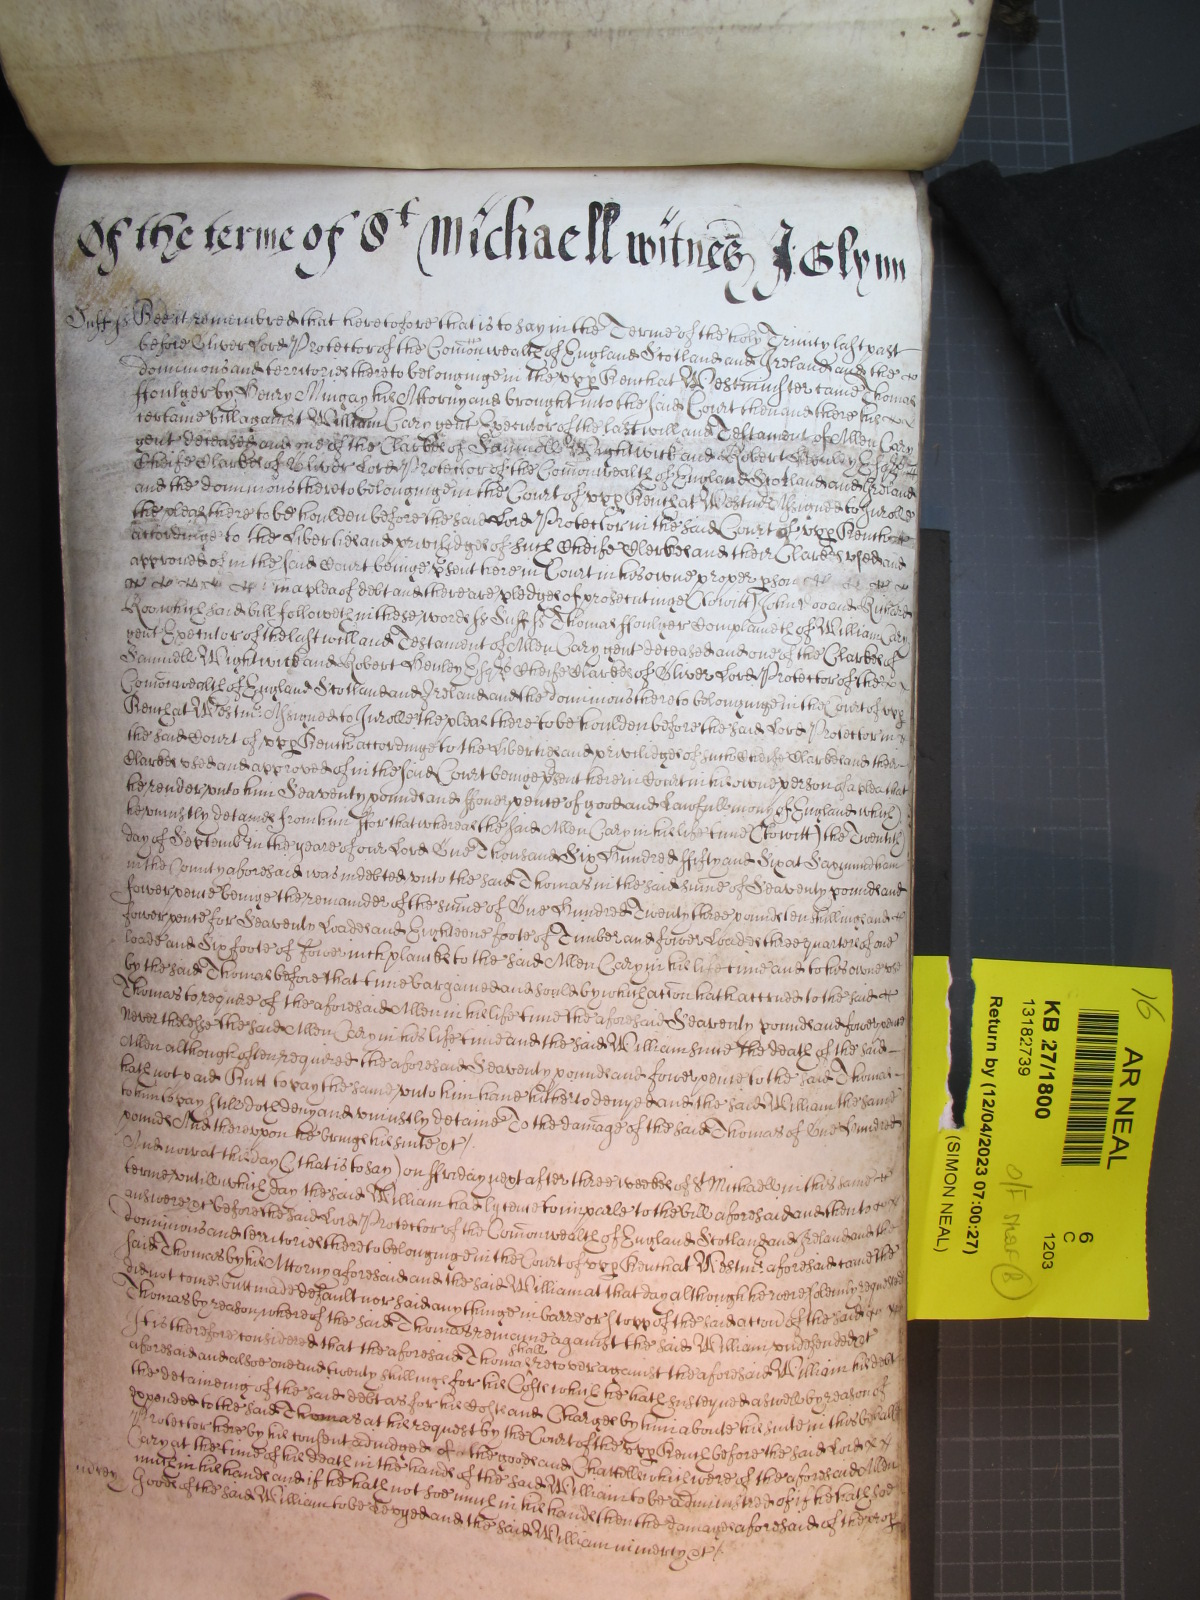 Of the terme of St Michaell witnes J Glynn
Suff ss Bee it remembred that heretofore that is to say in the Terme of the holy Trinity last past
before Oliver Lord Protector of the Comonwealth of England Scotland and Ireland and the
dominions and territories thereto belonginge in the upp Bench at Westminster came Thomas
ffoulger by Henry Mingay his Attorny and brought into the said Court then and there his
certaine bill against William Cary gent Executor of the last will and Testament of Allen Cary
gent deceased and one of the Clarkes of Samuell Wightwick and Robert Henley Esqrs
Cheife Clarkes of Oliver Lord Protector of the Comonwealth of England Scotland and Ireland
and the dominions thereto belonginge in the Court of upp Bench at Westmr Assigned to Inrolle
the pleas there to be houlden before the said Lord Protector in the said Court of upp Bench
accordinge to the liberties and priviledges of such Cheife Clarkes and their Clarkes used and
approved of in the said Court beinge psent here in Court in his owne proper pson
in a plea of debt and there are pledges of prosecutinge (to witt) John Doo and Richard
Roo which said bill followeth in these words ss Suff ss Thomas ffoulger Complaineth of William Cary
gent Executor of the last will and Testament of Allen Cary gent deceased and one of the Clarkes of
Samuell Wightwick and Robert Henley Esqrs Cheife Clarkes of Oliver Lord Protector of the
Comonwealth of England Scotland and Ireland and the dominions thereto belonginge in the Court of upp
Bench at Westmr Assigned to Inrolle the pleas there to be houlden before the said Lord Protector in
the said Court of upp Bench accordinge to the liberties and priviledges of such Cheife Clarkes and their
Clarkes used and approved of in the said Court beinge psent here in Court in his owne person of a plea that
he render unto him Seaventy pounds and ffower pence of good and Lawfull mony of England which
he unjustly detaines from him ffor that whereas the said Allen Cary in his life time (to witt) the Twentith
day of Septemb in the yeare of our Lord One Thousand Six Hundred ffifty and Six at Saxmundham
in the County aforesaid was indebted unto the said Thomas in the said sume of Seaventy pounds and
fower pence beinge the remainder of the sume of One Hundred Twenty three pounds ten shillings and
fower pence for Seaventy Loades and Eighteene foote of Timber and fower Loades three quarters of one
loade and Six foote of fower inch planke to the said Allen Cary in his life time and to his owne use
by the said Thomas before that time bargained and sould by which action hath accrued to the said
Thomas to require of the aforesaid Allen in his life time the aforesaid Seaventy pounds and fower pence
Neverthelesse the said Allen Cary in his life time and the said William since the death of the said
Allen although often required the aforesaid Seaventy pounds and fower pence to the said Thomas
hath not paid Butt to pay the same unto him have hitherto denyed and the said William the same
to him to pay still doth deny and uniustly detaine To the damage of the said Thomas of One Hundred
pounds And thereupon he brings his suite &c
And now at this Day (that is to say) on ffriday next after three weekes of St Michaell in this same
terme untill which day the said William had lycence to imparle to the bill aforesaid and then to
answere &c before the said Lord Protector of the Comonwealth of England Scotland and Ireland and the
dominions and territories thereto belonginge in the Court of upp Bench at Westmr aforesaid came the
said Thomas by his Attorny aforesaid and the said William at that day although he were solemnly required
did not come butt made default nor said any thinge in barre or stopp of the said action of the said
Thomas by reason whereof the said Thomas remaines against the said William undefended &c
It is therefore considered that the aforesaid Thomas shall recover against the aforesaid William his debt
aforesaid and alsoe one and twenty shillings for his Costs which he hath susteyned aswell by reason of
the detaineing of the said debt as for his Costs and Charges by him aboute his suite in this behalfe
expended to the said Thomas at his request by the Court of the upp Bench before the said Lord
Protector here by his consent adiudged of the goods and Chattells which were of the aforesaid Allen
Cary at the time of his death in the hands of the said William to be administred of if he hath soe
much in his hands and if he hath not soe much in his hands then the damages aforesaid of the prop
Goods of the said William to be levyed and the said William in mercy &c
mercy
16
AR NEAL
KB 27/1800
13182739
Return by (12/04/2023 07:00:27)
(SIMON NEAL)
6
C
1203